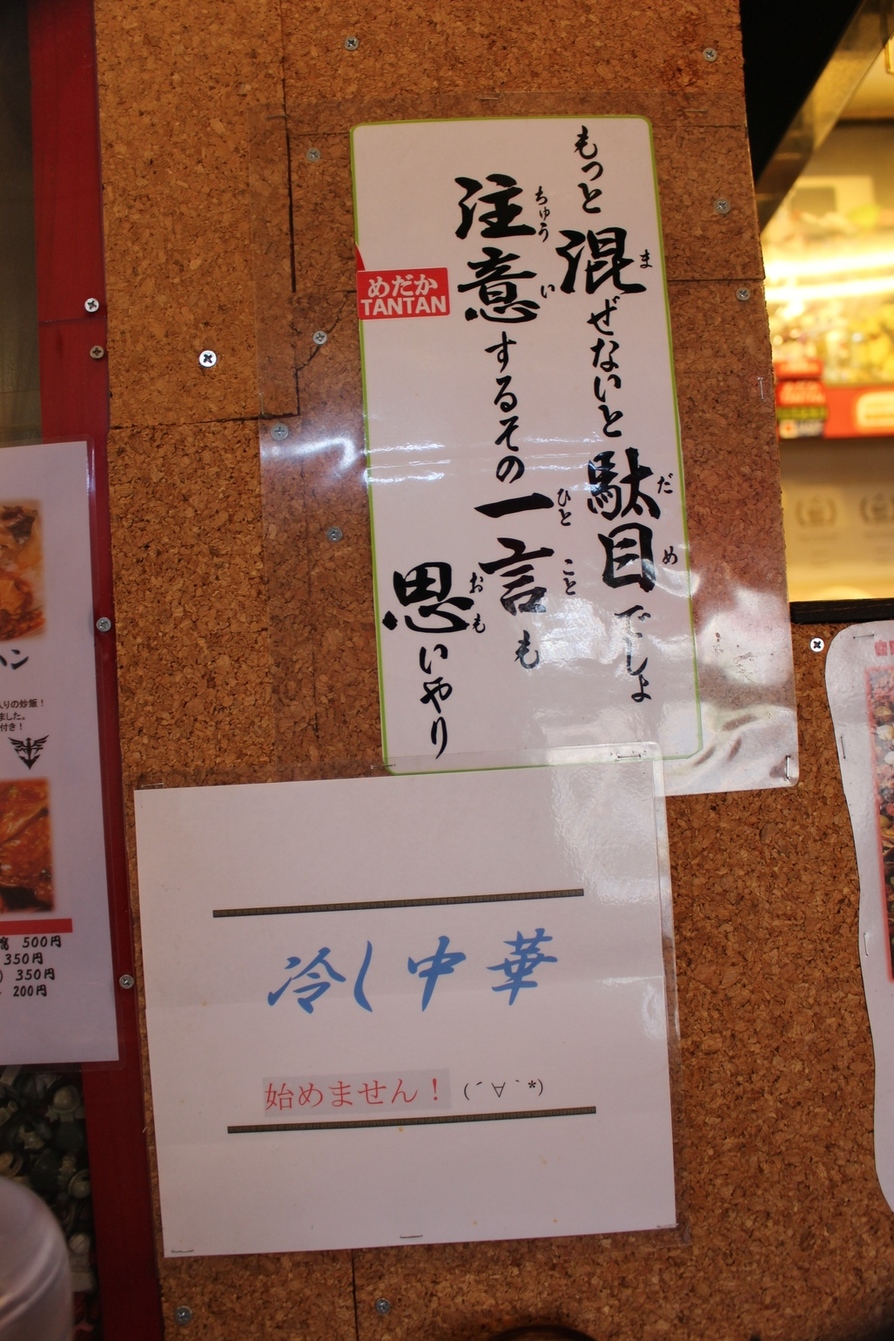 もっと混ぜないと駄目でしょ
注意するその一言も
思いやり
めだか
TANTAN
冷し中華
始めません! (´∀｀*)
ハン
入りの炒飯!
ました。
付き!
500円
350円
350円
200円